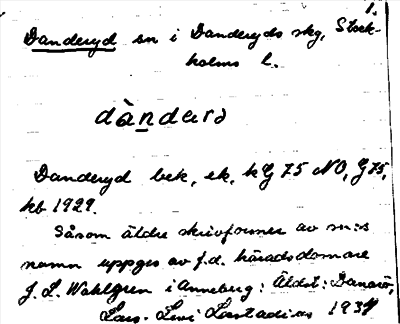 1.
Danderyd sn i Danderyds skg, Stock-
holms l.
dàndərd
Danderyd bek, ek, kG 75 NO, G 75,
hb 1929.
Såsom äldre skrivformer av sn:s
namn uppges av f.d. häradsdomare
J. L. Wahlgren i Anneberg: Äldst: Danarö,
Lars-Levi Læstadius 1934